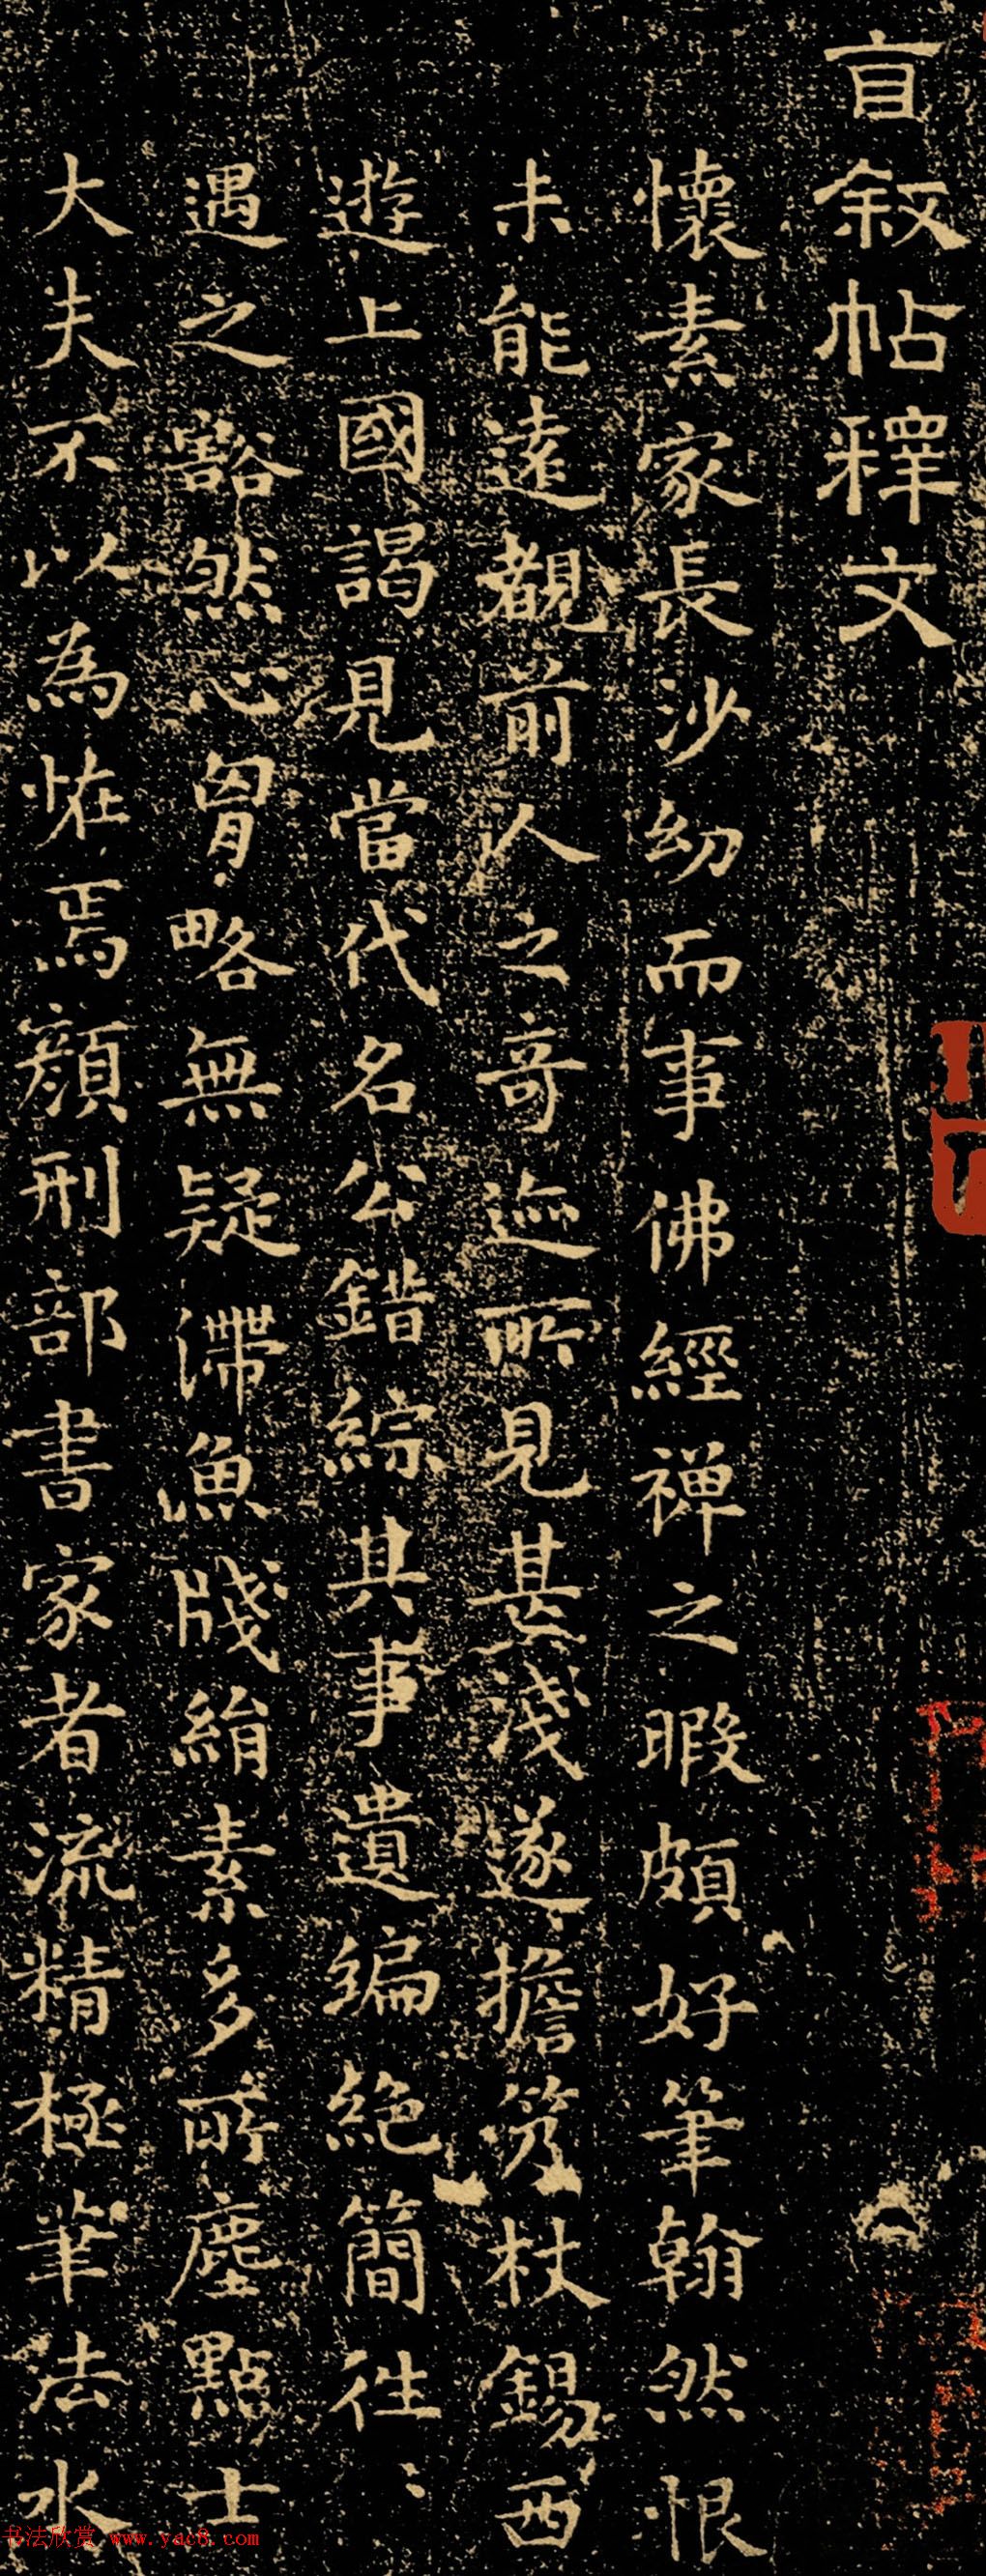 自敘帖釋文
懷素家長沙幼而事佛經禪之暇頗好筆翰然恨
未能遠覩前人之奇迹所見甚淺遂擔笈杖錫西
遊上國謁見當代名公錯綜其事遺編絕簡往〻
遇之豁然心胷略無疑滯魚牋絹素多所塵點士
大夫不以為恠焉顏刑部書家者流精極筆法水
书法欣赏 www.yac8.com